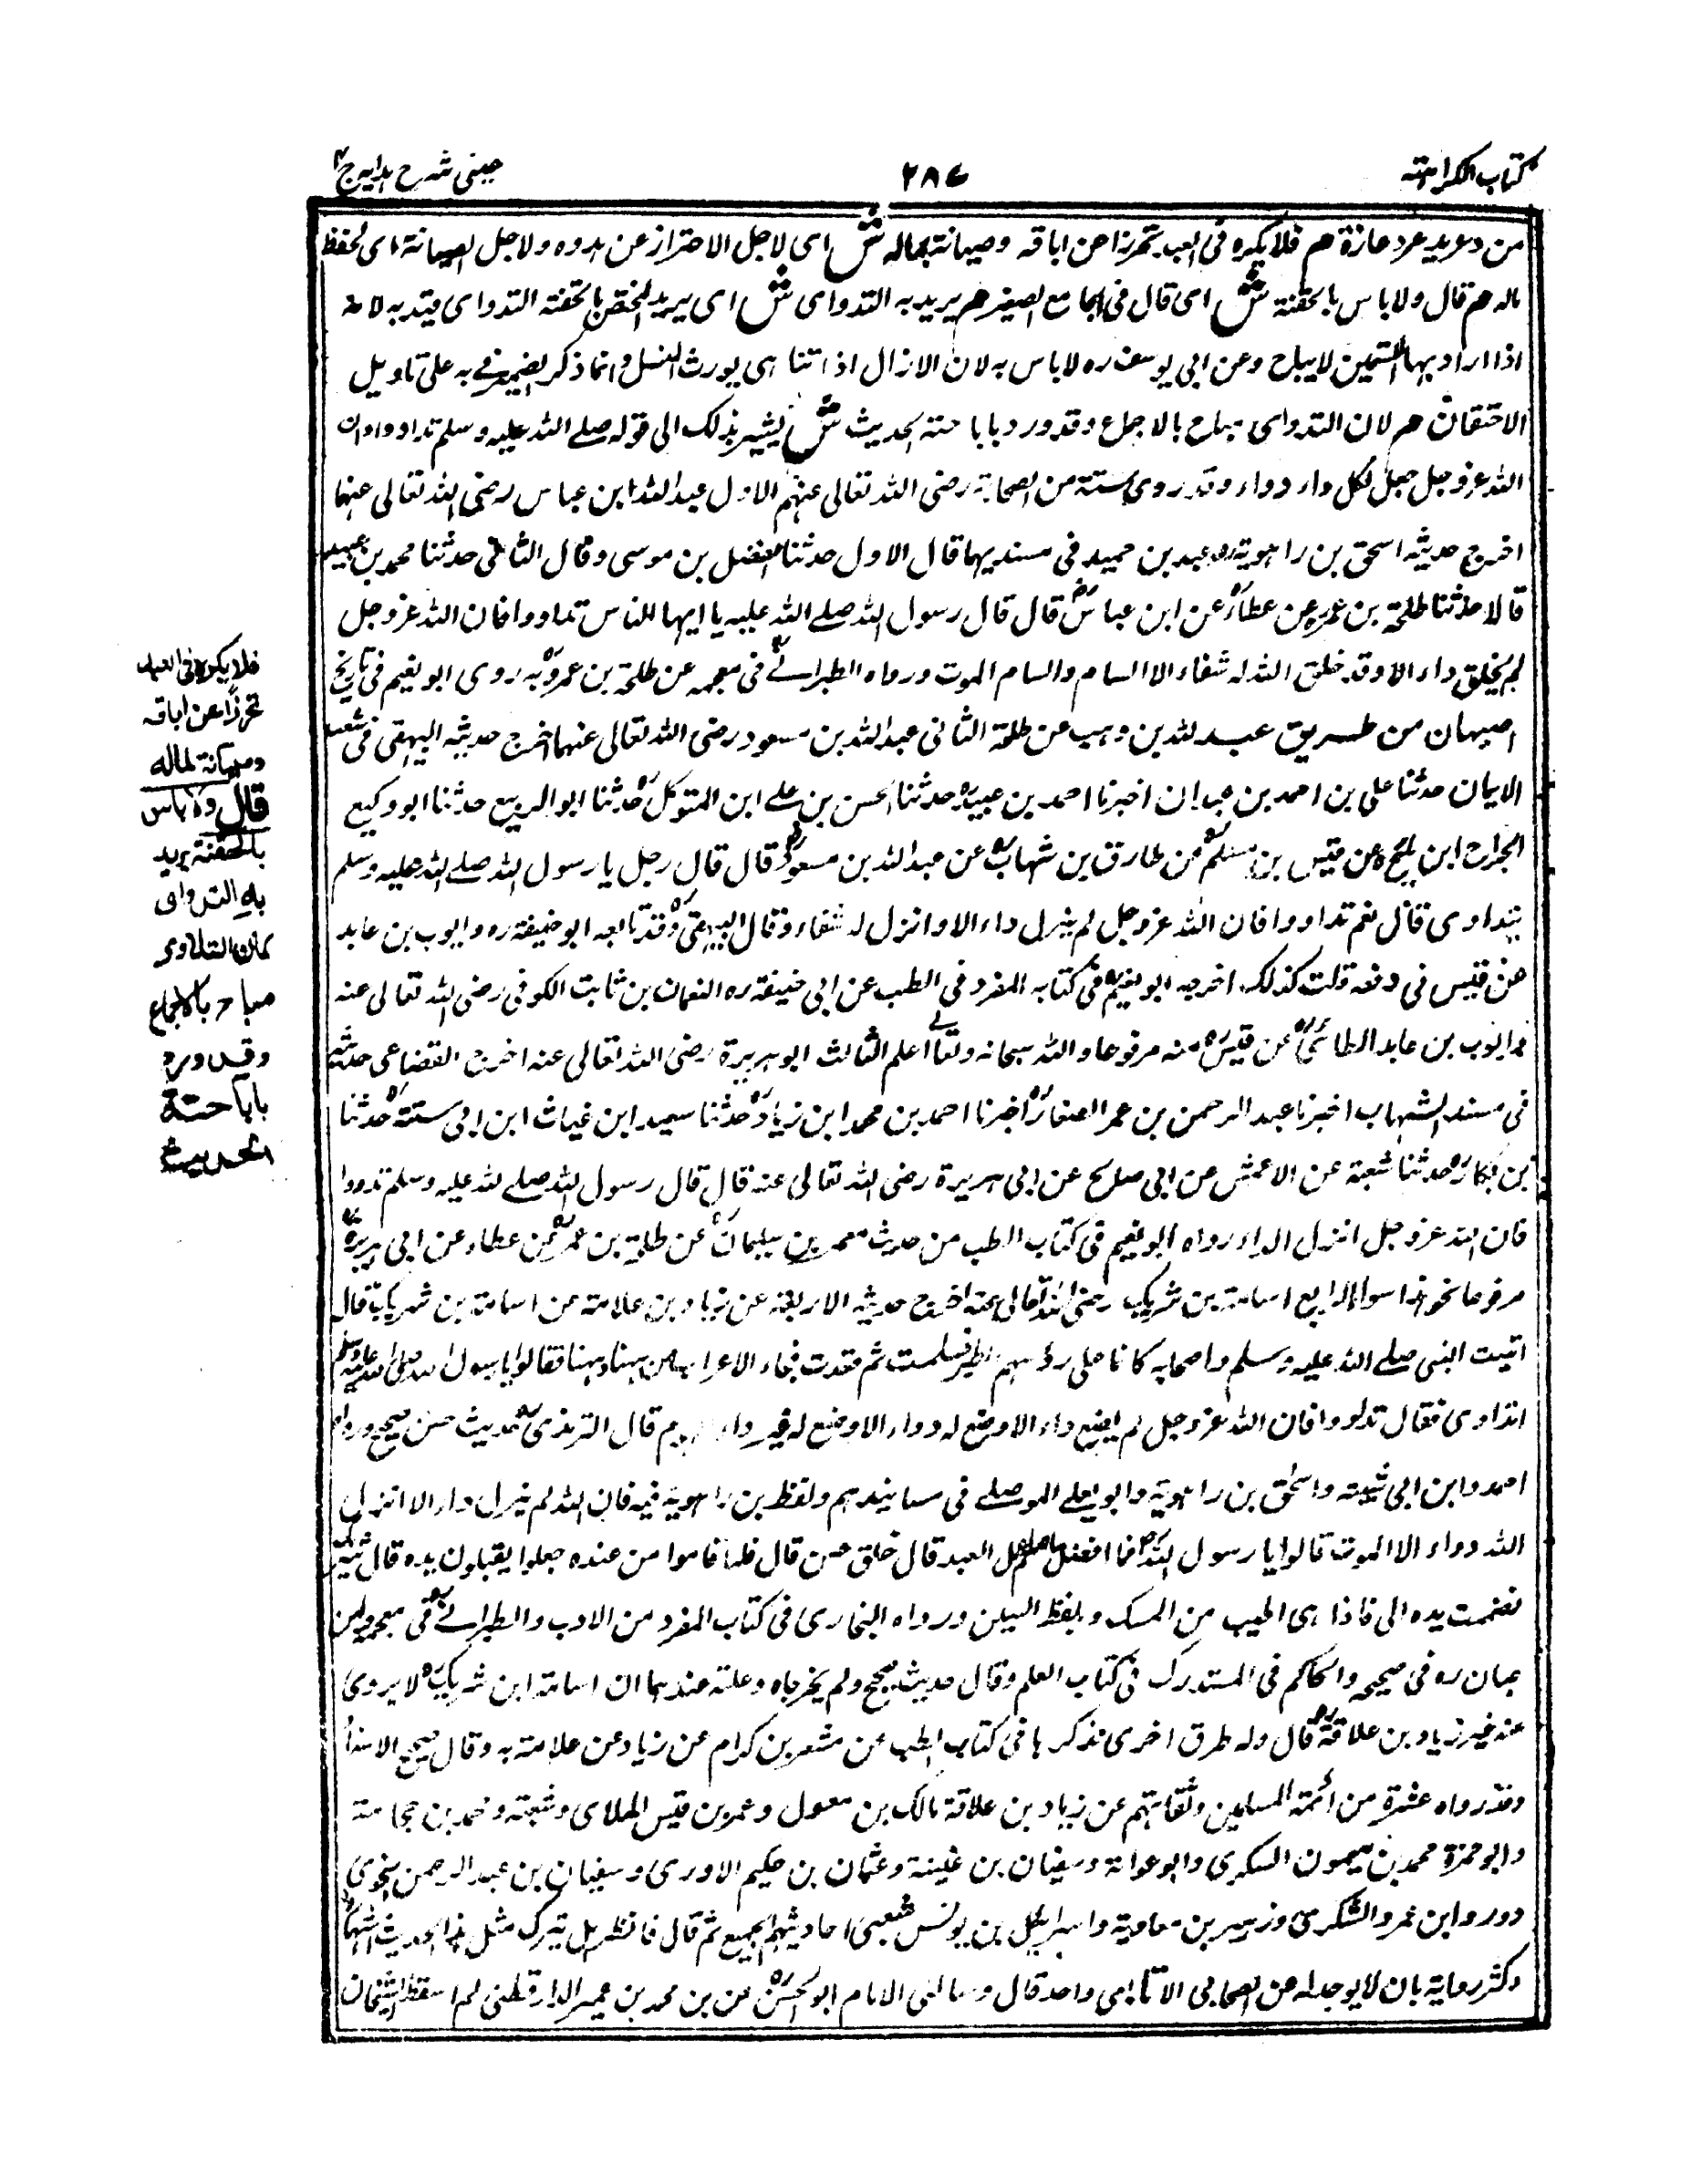 كتاب الكراهته
٢٨٧
عينى شرح هدايه ج٤
من دعويد عرد عازة هم فلا يكره فى العبد تحرزا عن اباقه وصيانة لماله ش اى لاجل الاحتراز عن هدوه ولاجل الصيانة اى لحفظ
ماله هم قال ولا باس بالحقنة ش اى قال فى الجامع الصغير هم يريد به التداوى ش اى يريد المحقن بالحقنة التداوى قيد به لانه
اذا اراد بها التسمين لا يباح وعن ابى يوسف ره لا باس به لان الازال اذا تناهى يورث السل وانما ذكر الضمير فى به على تاويل
الاحتقان هم لان التداوى مباح بالاجماع وقد ورد باباحته الحديث ش يشير بذلك الى قوله صلى الله عليه وسلم تداووا فان
الله عزوجل جعل لكل داء دواء وقد روى ستة من الصحابة رضى الله تعالى عنهم الاول عبدالله ابن عباس رضى الله تعالى عنهما
اخرج حديثه اسحق بن راهوية وعبد بن حميد فى مسنديهما قال الاول حدثنا الفضل بن موسى وقال الثانى حدثنا محمد بن عبيد
قالا حدثنا طلحة بن عمرو عن عطاء عن ابن عباس قال قال رسول الله صلى الله عليه يا ايها الناس تداووا فان الله عزوجل
لم يخلق داء الا وقد خلق الله له شفاء الا السام والسام الموت ورواه الطبرانى فى معجمه عن طلحة بن عمرو به روى ابو نعيم فى تاريخ
اصبهان من طريق عبدالله بن وهب عن طلحة الثانى عبدالله بن مسعود رضى الله تعالى عنهما اخرج حديثه البيهقى فى شعب
الايمان حدثنا على بن احمد بن عبدان اخبرنا احمد بن عبيد حدثنا الحسن بن على ابن المتوكل حدثنا ابو الربيع حدثنا ابو وكيع
الجراح ابن مليح عن قيس بن مسلم عن طارق بن شهاب عن عبدالله بن مسعود قال قال رجل يا رسول الله صلى الله عليه وسلم
يتداوى قال نعم تداووا فان الله عزوجل لم ينزل داء الا وانزل له شفاء وقال البيهقى وقد تابعه ابو حنيفه ره وايوب بن عابد
عن قيس فى رفعه قلت كذلك اخرجه ابو نعيم فى كتابه المفرد فى الطب عن ابى حنيفه ره النعمان بن ثابت الكوفى رضى الله تعالى عنه
وايوب بن عابد الطائى عن قيس منه مرفوعا والله سبحانه وتعالى اعلم الثالث ابو هريرة رضى الله تعالى عنه اخرج القضاعى حديثه
فى مسند الشهاب اخبرنا عبد الرحمن بن عمر الصفار اخبرنا احمد بن محمد ابن زياد حدثنا سعيد ابن غياث ابن ابى ستة حدثنا
بن بكار حدثنا شعبة عن الاعمش عن ابى صالح عن ابى هريرة رضى الله تعالى عنه قال قال رسول الله صلى الله عليه وسلم تداووا
فان الله عزوجل انزل الداء رواه ابو نعيم فى كتاب الطب من حديث معمر بن سليمان عن طلحة بن عمرو عن عطاء عن ابى هريرة
مرفوعا نحو هذا سواء الرابع اسامة بن شريك رضى الله تعالى عنه اخرج حديثه الاربعة عن زياد بن علامة عن اسامة بن شريك قال
اتيت النبى صلى الله عليه وسلم واصحابه كانما على رؤسهم الطير فسلمت ثم قعدت فجاء الاعراب من ههنا وههنا فقالوا يا رسول الله صلى الله عليه وسلم
انتداوى فقال تداووا فان الله عزوجل لم يضع داء الا وضع له دواء الا وضع له غير داء الهرم قال الترمذى حديث حسن صحيح ورواه
احمد وابن ابى شيبته واسحق بن راهوية وابو يعلى الموصلى فى مسانيدهم ولفظ بن راهوية فيه فان الله لم ينزل داء الا انزل
الله دواء الا الموت قالوا يا رسول الله فما افضل ما عمل العبد قال خلق حسن قال فلما قاموا من عنده جعلوا يقبلون يده قال شريك
فضمت يده الى فاذا هى اطيب من المسك وبلفظ السنن ورواه البخارى فى كتاب المفرد من الادب والطبرانى فى معجمه وابن
حبان ره فى صحيحه والحاكم فى المستدرك فى كتاب العلم وقال حديث صحيح ولم يخرجاه وعلته عندهما ان اسامة ابن شريك لا يروى
عنه غير زياد بن علاقة قال وله طرق اخرى نذكرها فى كتاب الطب عن مسعر بن كدام عن زياد عن علامته به وقال صحيح الاسناد
وقد رواه عشرة من ائمة المسلمين وثقاتهم عن زياد بن علاقة مالك بن مغول وعمرو بن قيس الملاى وشعبته ومحمد بن جحامته
وابو حمزة محمد بن ميمون السكرى وابو عوانة وسفيان بن عيينة وعثمان بن حكيم الاورى وسفيان بن عبد الرحمن النحوى
دورو ابن عمر والشكرى وزهير بن معاوية واسرائيل بن يونس شعبى احاديثهم الجميع ثم قال فانظر هل يترك مثل هذا الحديث اشتهار
وكثر رواية بان لا يوجد له عن الصحابى الا تابعى واحد قال وسالنى الامام ابو الحسن عن بن محمد بن عمير الدارقطنى لم اسقط الشيخان
فلا يكره فى العبد
تحرزا عن اباقه
وصيانة لماله
قال ولا باس
بالحقنة يريد
به التداوى
لان التداوى
مباح بالاجماع
وقد ورد
باباحته
الحديث